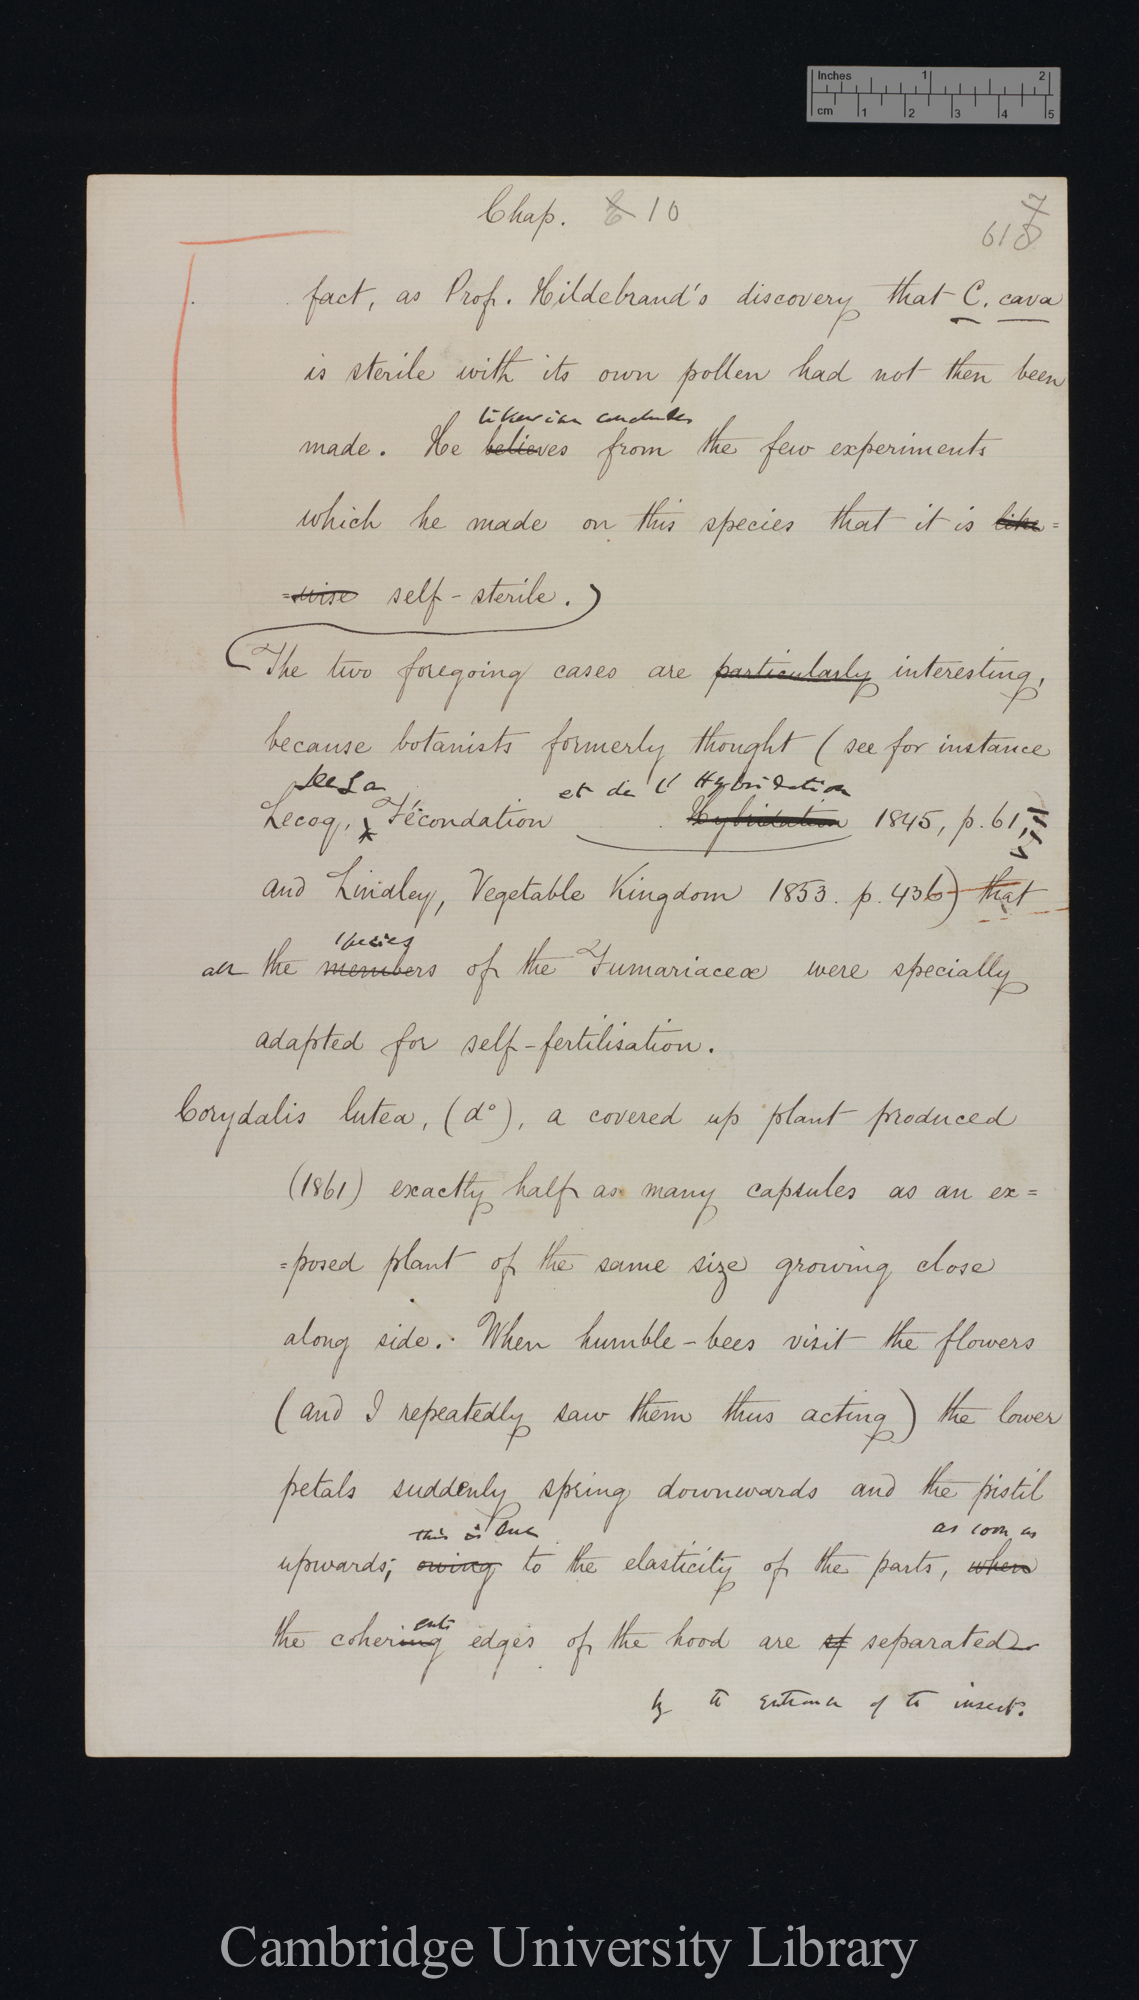 Inches 1 2
cm 1 2 3 4 5
Chap. 10
7
618
fact, as Prof. Hildebrand's discovery that C. cava
is sterile with its own pollen had not then been
likewise concludes
made. He believes from the few experiments
which he made on this species that it is like=
=wise self-sterile.)
(The two foregoing cases are particularly interesting,
because botanists formerly thought (see for instance
De La et de l'Hybridation
Lecoq, Fécondation Hybridation 1845, p. 61,
and Lindley, Vegetable Kingdom 1853. p. 436) that
species
all the members of the Fumariaceæ were specially
adapted for self-fertilisation.
Corydalis lutea, (do), a covered up plant produced
(1861) exactly half as many capsules as an ex=
=posed plant of the same size growing close
along side. When humble-bees visit the flowers
(and I repeatedly saw them thus acting) the lower
petals suddenly spring downwards and the pistil
this is due as soon as
upwards; owing to the elasticity of the parts, when
ent
the cohering edges of the hood are separated
by the entrance of the insect.
Cambridge University Library